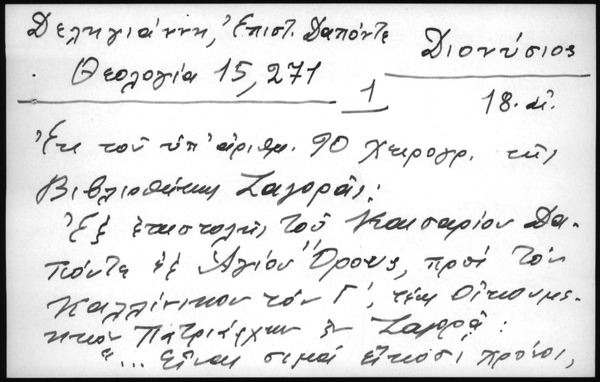 Δεληγιάννη, Ἐπιστ. Δαπόντε
Διονύσιος
Θεολογία 15, 271
1
18. αἰ.
Ἐκ τοῦ ὑπ' ἀριθμ. 90 χειρογρ. τῆς
Βιβλιοθήκης Ζαγορᾶς:
Ἐξ ἐπιστολῆς τοῦ Καισαρίου Δα-
πόντε ἐξ Ἁγίου Ὄρους, πρὸς τὸν
Καλλίνικον τὸν Γ', τέως Οἰκουμε-
νικὸν Πατριάρχην ἐν Ζαγορᾷ:
"... εἶναι σιμὰ εἴκοσι χρόνοι,